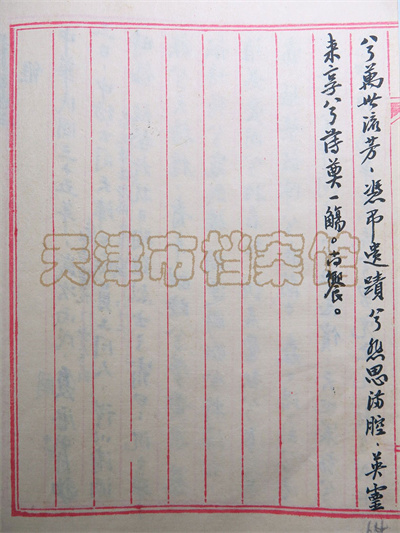 兮萬世流芳、憑弔遺蹟兮愁思滿腔、英靈
来享兮薄奠一觴。尚饗。
天津市档案馆